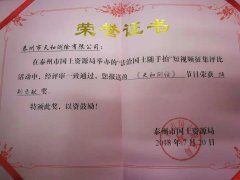 荣誉证书
泰州市天和测绘有限公司：
在泰州市国土资源局举办的“法治国土随手拍”短视频征集评比
活动中，经评审一致通过，您报送的《天和测绘》节目荣获
奖。
特颁此奖，以资鼓励！
泰州市国土资源局
2018年7月20日